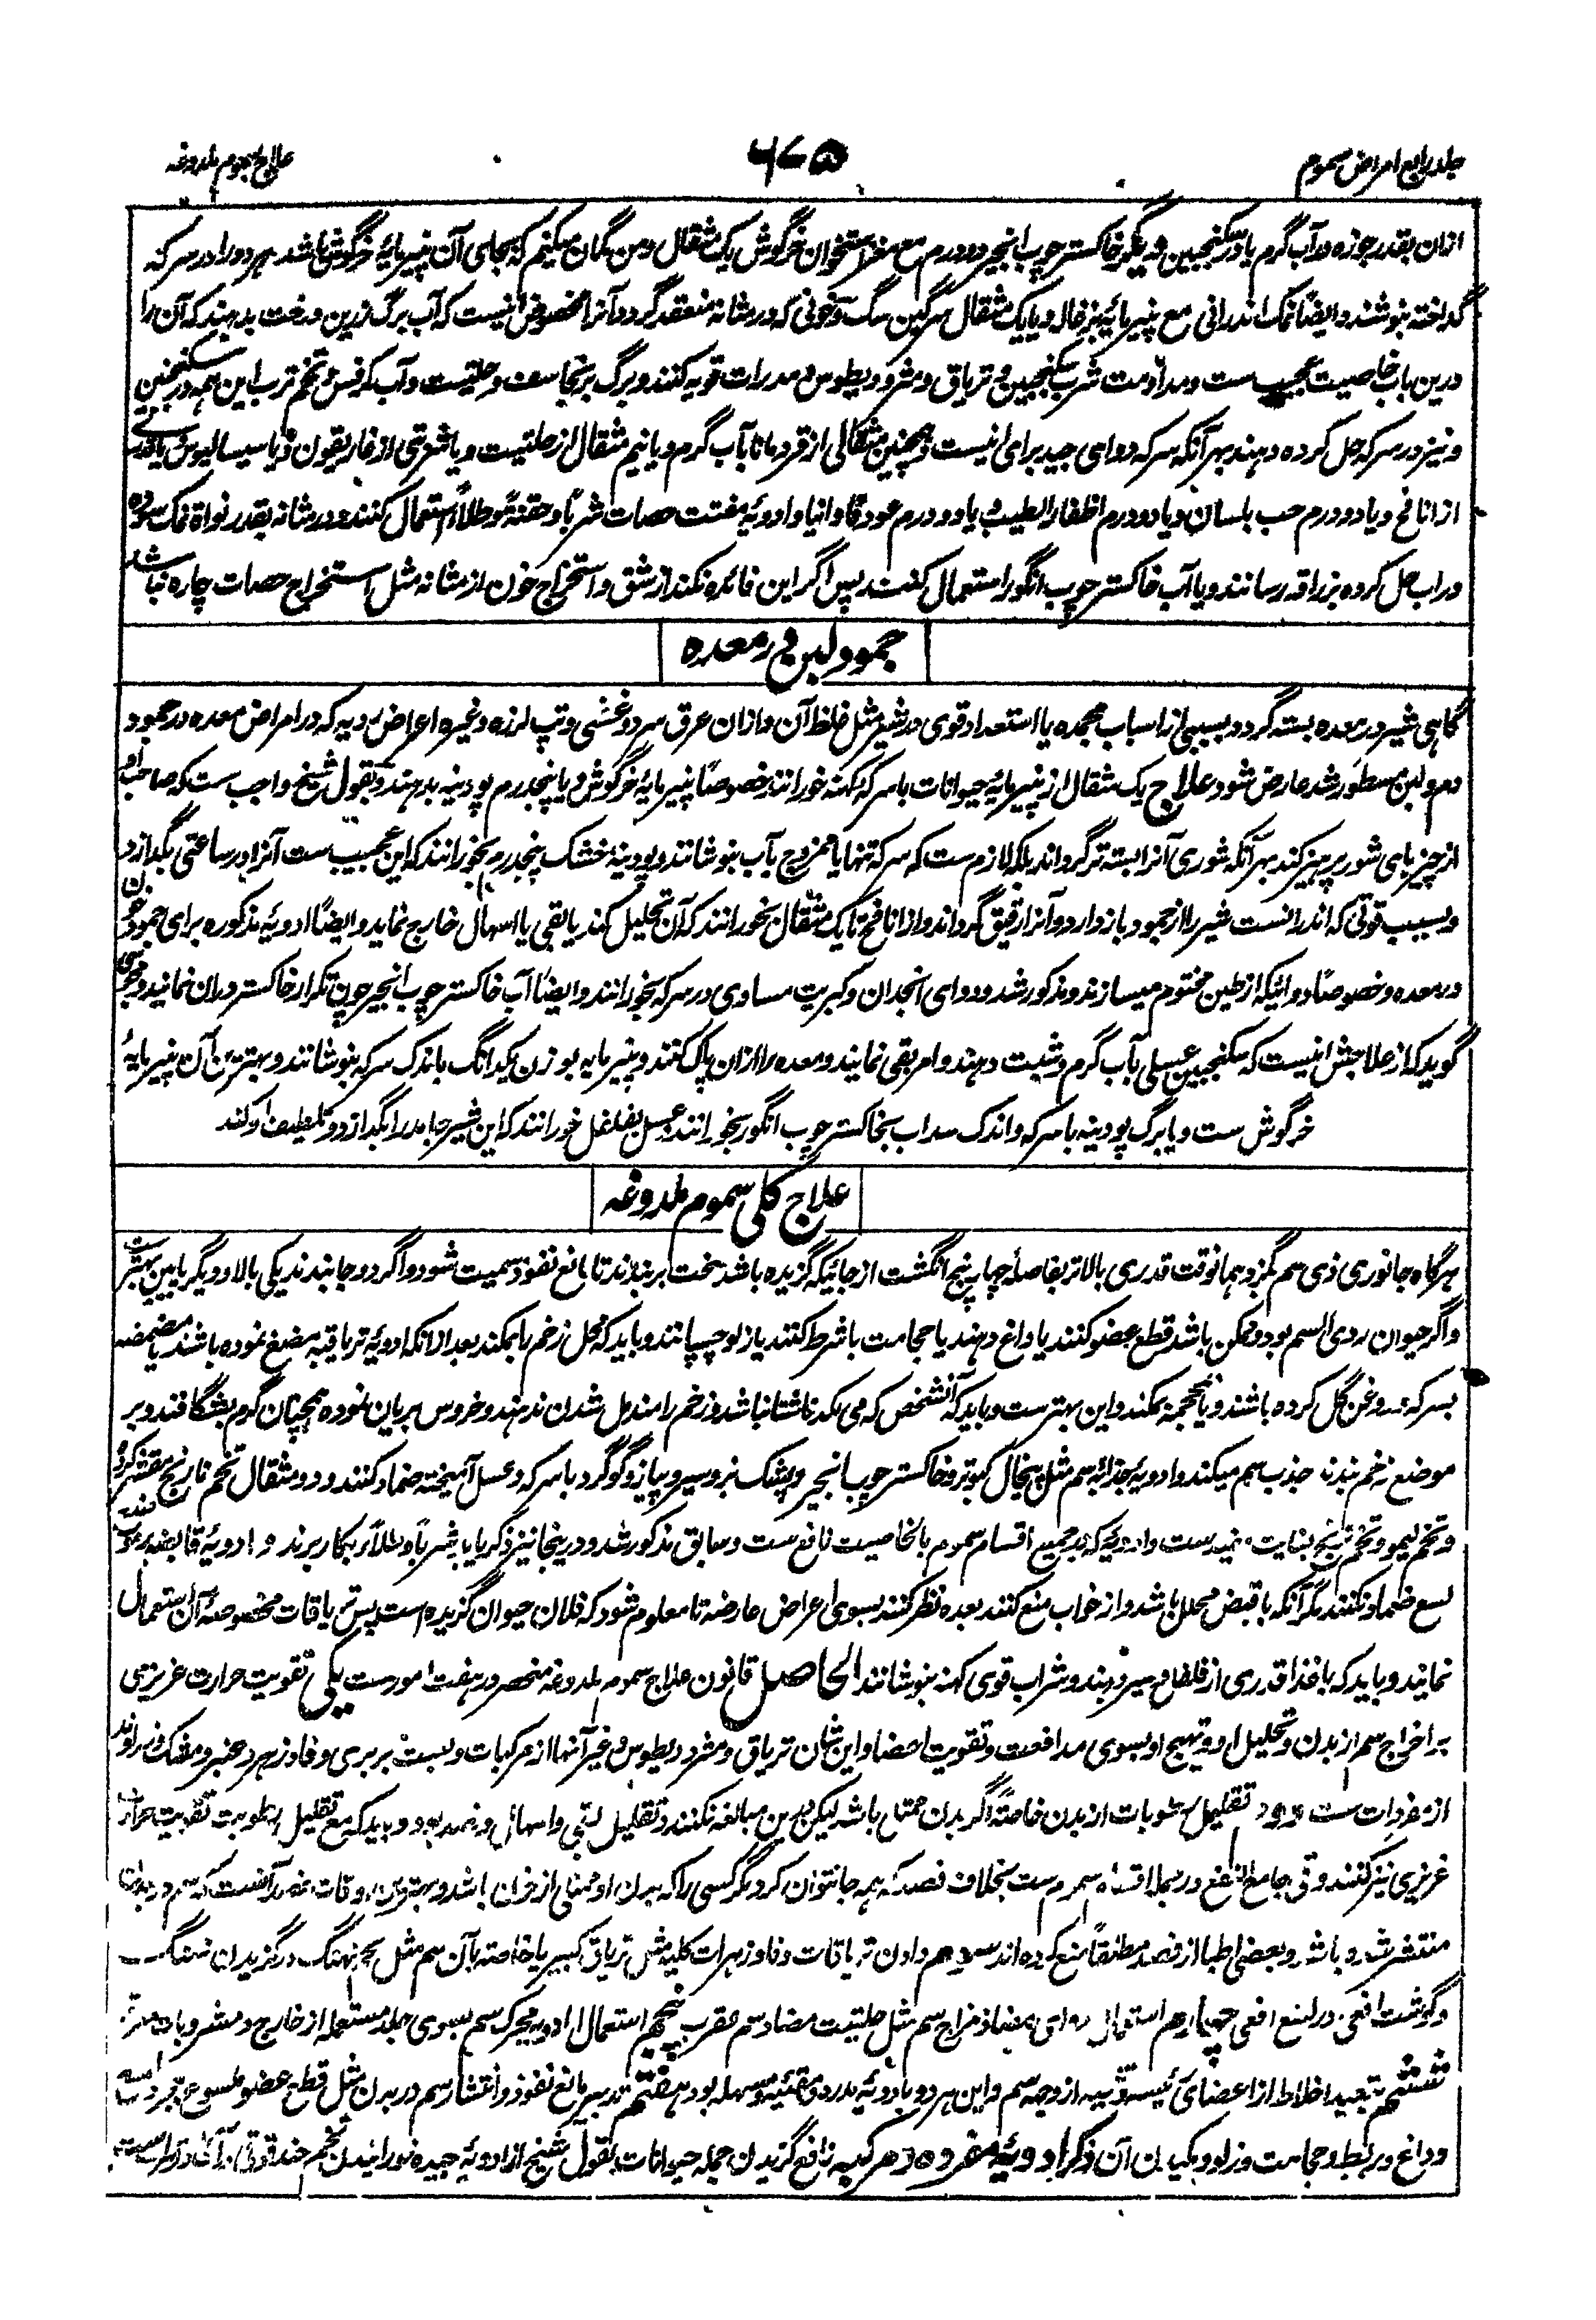 جلد رابع امراض سموم
۶۷۵
علاج سموم ملدوغه
ازان بقدر جوزه در آب گرم یا در سکنجبین و دیگر خاکستر چوب انجیر دو درم مع مغز استخوان خرگوش یک مثقال و من گمان میکنم که بجای آن پنیرمایهٔ خرگوش باشد هر دو را در سرکه
گداخته بنوشند و ایضاً نمک اندرانی مع پنیرمایهٔ بزغاله و یا یک مثقال سرگین سگ و خونی که در مثانه منعقد گردد آنرا مخصوص اینست که آب برگ درخت بدهند که آن را
درین باب خاصیت عجیب ست و مداومت شرب سکنجبین و تریاق و مثرودیطوس و مدرات قویه کنند و برگ برنجاسف و حلتیت و آب کرفس و تخم ترب این همه در سکنجبین
و نیز در سرکه حل کرده دهند بهر آنکه سرکه دوای جید برای اینست و همچنین مثقالی از قردمانا بآب گرم و یا نیم مثقال از حلتیت و یا شربتی از غاریقون و یا سیسالیوس یا قدری
از انافح و یا دو درم حب بلسان و یا دو درم اظفار الطیب و یا دو درم عود فاوانیا و ادویهٔ مفتت حصات شرباً و حقنةً و طلاءً استعمال کنند و در مثانه بقدر نواة نمک سوده
در آب حل کرده بزراقه رسانند و یا آب خاکستر چوب انگور استعمال کنند پس اگر این فائده نکند از شق و استخراج خون از مثانه مثل استخراج حصات چاره نباشد
جمود لبن در معده
گاهی شیر در معده بسته گردد بسببی از اسباب مجمده یا استعداد قوی در شیر مثل غلظ آن و ازان عرق سرد و غشی و تپ لرزه و غیره اعراض ردیه که در امراض معده در جمود
دم و لبن مسطور شد عارض شود علاج یک مثقال از پنیرمایهٔ حیوانات با سرکهٔ کهنه خورانند خصوصاً پنیرمایهٔ خرگوش و یا پنجدرم پودینه بدهند و بقول شیخ واجب ست که صاحب او
از چیزهای شور پرهیز کند بهر آنکه شوری آنرا بسته تر گرداند بلکه لازم ست که سرکه تنها یا ممزوج بآب بنوشانند و پودینهٔ خشک پنجدرم بخورانند که این عجیب ست آنرا در ساعتی بگدازد
و بسبب قوتی که اندر انست شیر را از جمود باز دارد و آنرا رقیق گرداند و از انافح تا یک مثقال بخورانند که آن تحلیل کند یا بقی یا اسهال خارج نماید و ایضاً ادویهٔ مذکوره برای جمود خون
در معده و خصوصاً دوائیکه از طین مختوم میسازند و مذکور شد و دوای انجدان و کبریت مساوی در سرکه بخورانند و ایضاً آب خاکستر چوب انجیر چون تکرار خاکستر دران نمایند و مجوسی
گوید که از علاجش اینست که سکنجبین عسلی بآب گرم و شبت دهند و امر بقی نمایند و معده را ازان پاک کنند و پنیرمایه بوزن یکدانگ باندک سرکه بنوشانند و بهترین آن پنیرمایهٔ
خرگوش ست و یا برگ پودینه با سرکه و اندک سداب بخاکستر چوب انگور بخورانند و عسل بفلفل خورانند که این شیر جامد را بگدازد و تلطیف او کند
علاج کلی سموم ملدوغه
هرگاه جانوری ذی سم بگزد همانوقت قدری بالاتر بفاصلهٔ چهار پنج انگشت از جائیکه گزیده باشد سخت بربندند تا مانع نفوذ سمیت شود و اگر دو جا بندند یکی بالا و دیگر پایین بهتر ست
و اگر حیوان ردی السم بود و ممکن باشد قطع عضو کنند یا داغ دهند یا حجامت با شرط کنند یا زلو چسپانند و باید که محل زخم را بمکند بعد ازانکه ادویهٔ تریاقیه مضغ نموده باشند یا مضمضه
بسرکه و روغن گل کرده باشند و یا بمحجمه بمکند و این بهترست و باید که آنشخص که می مکد ناشتا نباشد و زخم را مندمل شدن ندهند و خروس بریان نموده همچنان گرم بشگافند و بر
موضع زخم بندند جذب سم میکند و ادویهٔ جذابهٔ سم مثل پیخال کبوتر و خاکستر چوب انجیر و پشک بز و سیر و پیاز و گوگرد با سرکه و عسل آمیخته ضماد کنند و دو مثقال تخم نارنج مقشر کرده
و تخم لیمو و تخم ترنج بغایت مفید ست و ادویه که بجمیع اقسام سموم بالخاصیت نافع ست و سابق مذکور شد و درینجا نیز ذکر یابد شرباً و طلاءً بکار برند و ادویهٔ قابضه بر موضع
لسع ضماد نکنند مگر آنکه با قبض محلل باشد و از خواب منع کنند بعده نظر کنند بسوی اعراض عارضه تا معلوم شود که فلان حیوان گزیده است پس تریاقات مخصوصهٔ آن استعمال
نمایند و باید که با غذا قدری از فلفل و سیر دهند و شراب قوی کهنه بنوشانند الحاصل قانون علاج سموم ملدوغه منحصر در هفت امور ست یکی تقویت حرارت غریزی
بر اخراج سم از بدن و تحلیل او و تهییج او بسوی مدافعت و تقویت اعضا و این شان تریاق و مثرودیطوس و غیر آنها از مرکبات و بسبت بربری و فادزهر و عنبر و مشک و زراوند
از مفردات ست دوم تقلیل رطوبات از بدن خاصةً اگر بدن ممتلی باشد لیکن درین مبالغه نکنند و تقلیل بقی و اسهال و فصد بود و باید که مع تقلیل رطوبت تقویت حرارت
غریزی نیز کنند و قی جامع النفع در جمله اقسام سموم ست بخلاف فصد که همه جا نتوان کرد مگر کسی را که بدن او ممتلی از خون باشد و بهترین اوقات فصد آنست که سم در بدن
منتشر شده باشد و بعضی اطبا از فصد مطلقاً منع کرده اند سوم دادن تریاقات و فادزهرات کلیه مثل تریاق کبیر یا خاصه بآن سم مثل نهنگ در گزیدن نهنگ
و گوشت افعی در لسع افعی چهارم استعمال دوای مضاد مزاج سم مثل حلتیت مضاد سم عقرب پنجم استعمال ادویهٔ محرک سم بسوی جلد مستعمله از خارج و مشروبات معرقه
ششم تبعید اخلاط از اعضای رئیسه قریبه از وجه سم و این هر دو بادویهٔ مدره و مقیئه و مسهله بود هفتم تدبیر مانع نفوذ و انتشار سم در بدن مثل قطع عضو ملسوع
و داغ و ربط و حجامت و زلو و مکیدن آن ذکر ادویهٔ مفرده و مرکبه نافع گزیدن جمله حیوانات بقول شیخ از ادویهٔ جیده خورانیدن تخم حندقوقی